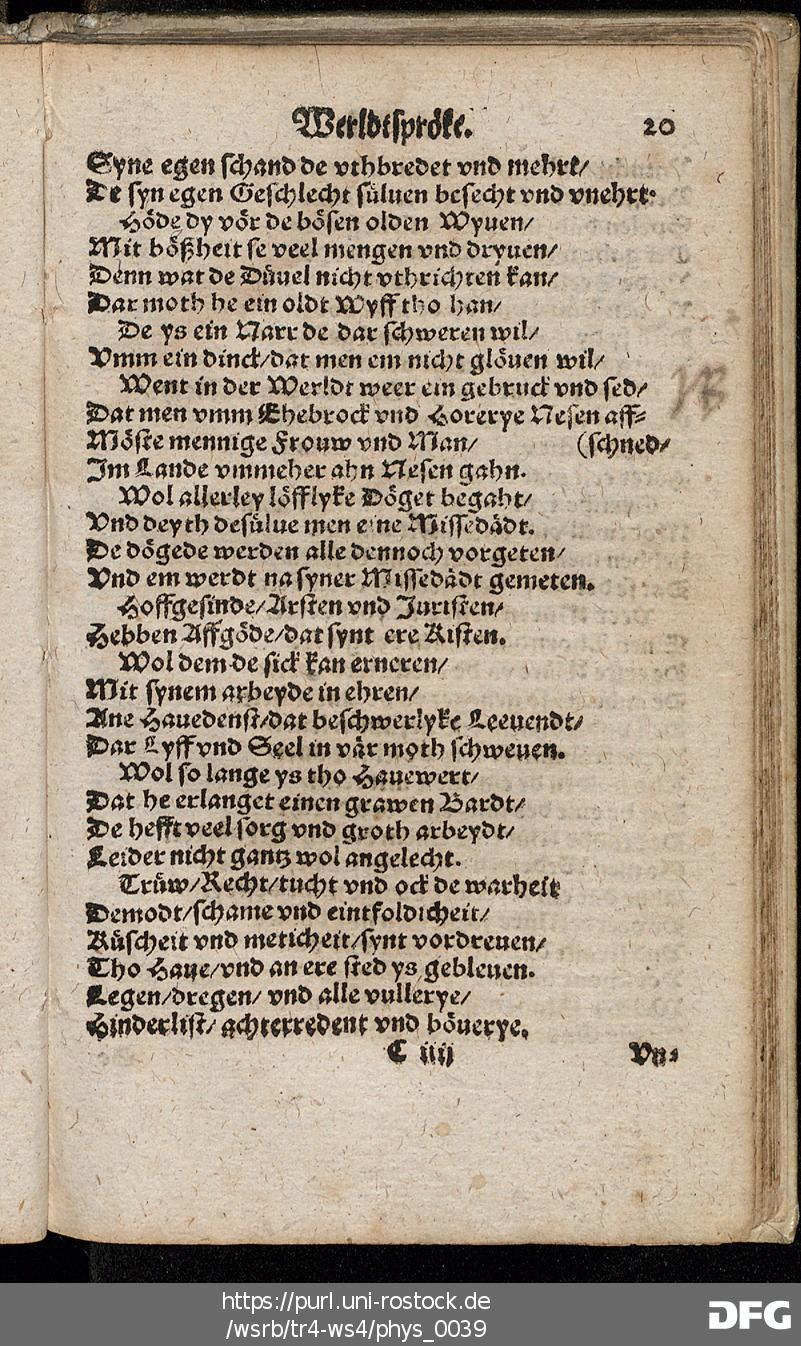 Werldtspröke. 20
Syne egen schand de vthbredet vnd mehrt/
De syn egen Geschlecht süluen besecht vnd vnehrt.
Höde dy vör de bösen olden Wyuen/
Mit bößheit se veel mengen vnd dryuen/
Denn wat de Düuel nicht vthrichten kan/
Dar moth he ein oldt Wyff tho han/
De ys ein Narr de dar schweren wil/
Vmm ein dinck/dat men em nicht glöuen wil/
Went in der Werldt weer ein gebruck vnd sed/
Dat men vmm Ehebrock vnd Horerye Nesen aff=
Möste mennige Frouw vnd Man/ (schned/
Im Lande vmmeher ahn Nesen gahn.
Wol allerley löfflyke Döget begaht/
Vnd deyth desülue men eine Missedädt.
De dögede werden alle dennoch vorgeten/
Vnd em werdt na syner Missedädt gemeten.
Hoffgesinde/Arsten vnd Juristen/
Hebben Affgöde/dat synt ere Kisten.
Wol dem de sick kan erneren/
Mit synem arbeyde in ehren/
Ane Hauedenst/dat beschwerlyke Leeuendt/
Dar Lyff vnd Seel in vär moth schweuen.
Wol so lange ys tho Hauewert/
Dat he erlanget einen grawen Bardt/
De hefft veel sorg vnd groth arbeydt/
Leider nicht gantz wol angelecht.
Trüw/Recht/tucht vnd ock de warheit
Demodt/schame vnd eintfoldicheit/
Küscheit vnd meticheit/synt vordreuen/
Tho Haue/vnd an ere sted ys gebleuen.
Legen/dregen/ vnd alle vullerye/
Hinderlist/ achterredent vnd böuerye.
C iiij Vn=
https://purl.uni-rostock.de
/wsrb/tr4-ws4/phys_0039
DFG